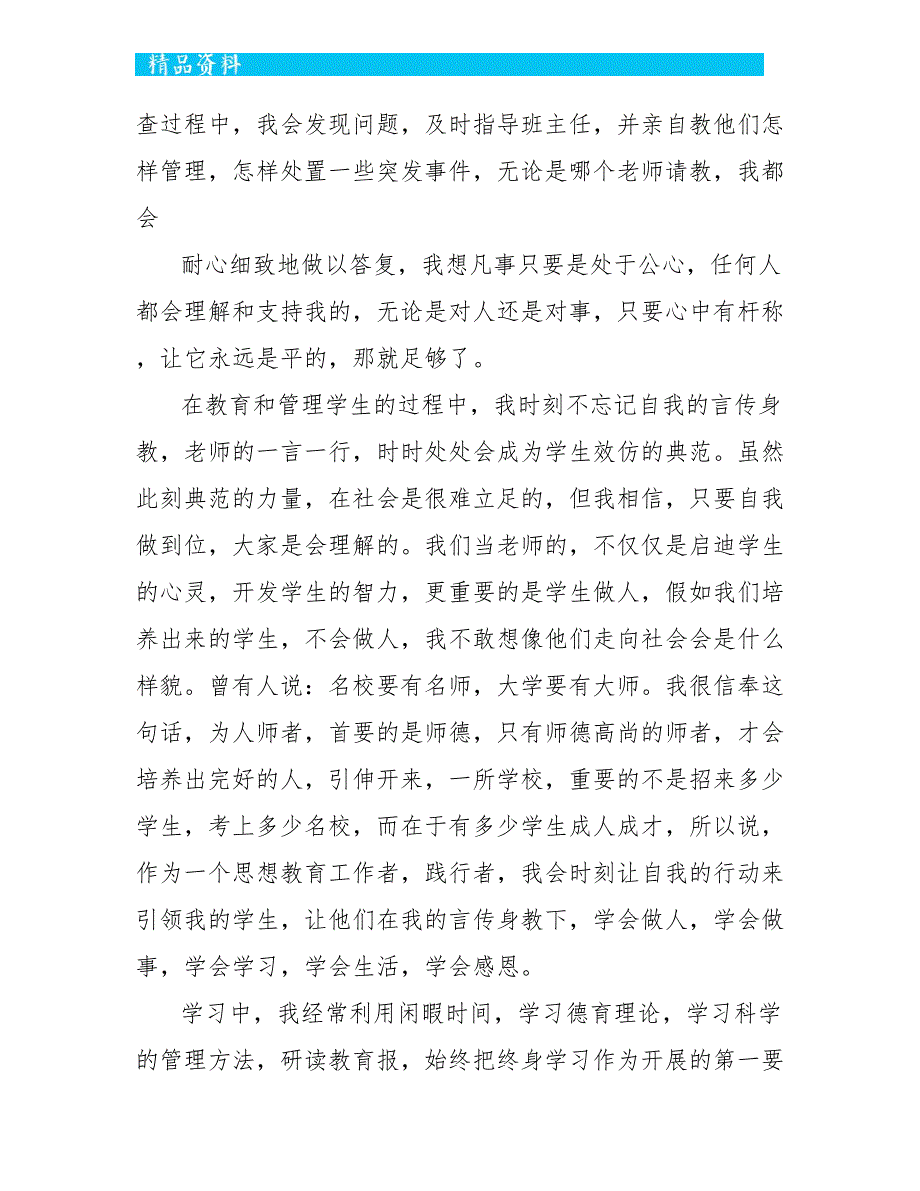 精品资料
查过程中，我会发现问题，及时指导班主任，并亲自教他们怎
样管理，怎样处置一些突发事件，无论是哪个老师请教，我都
会
耐心细致地做以答复，我想凡事只要是处于公心，任何人
都会理解和支持我的，无论是对人还是对事，只要心中有杆称
，让它永远是平的，那就足够了。
在教育和管理学生的过程中，我时刻不忘记自我的言传身
教，老师的一言一行，时时处处会成为学生效仿的典范。虽然
此刻典范的力量，在社会是很难立足的，但我相信，只要自我
做到位，大家是会理解的。我们当老师的，不仅仅是启迪学生
的心灵，开发学生的智力，更重要的是学生做人，假如我们培
养出来的学生，不会做人，我不敢想像他们走向社会会是什么
样貌。曾有人说：名校要有名师，大学要有大师。我很信奉这
句话，为人师者，首要的是师德，只有师德高尚的师者，才会
培养出完好的人，引伸开来，一所学校，重要的不是招来多少
学生，考上多少名校，而在于有多少学生成人成才，所以说，
作为一个思想教育工作者，践行者，我会时刻让自我的行动来
引领我的学生，让他们在我的言传身教下，学会做人，学会做
事，学会学习，学会生活，学会感恩。
学习中，我经常利用闲暇时间，学习德育理论，学习科学
的管理方法，研读教育报，始终把终身学习作为开展的第一要